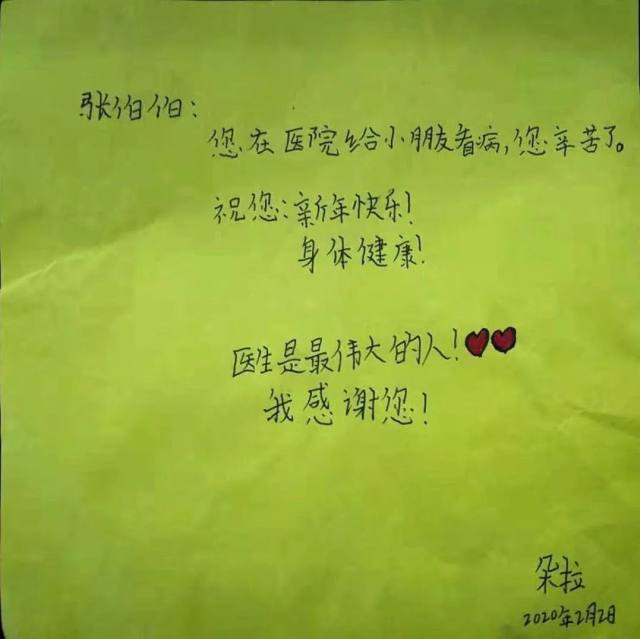 张伯伯:
您在医院给小朋友看病,您辛苦了。
祝您:新年快乐!
身体健康!
医生是最伟大的人!
我感谢您!
朵拉
2020年2月2日